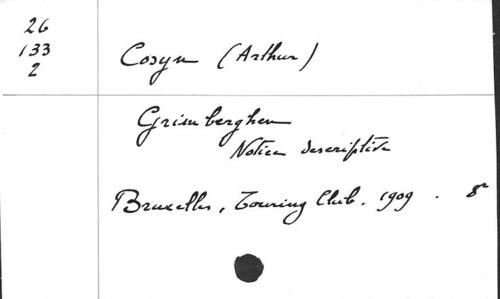 26
133
2
Cosyn (Arthur)
Grimberghen
Notice descriptive
Bruxelles, Touring Club. 1909. 8°